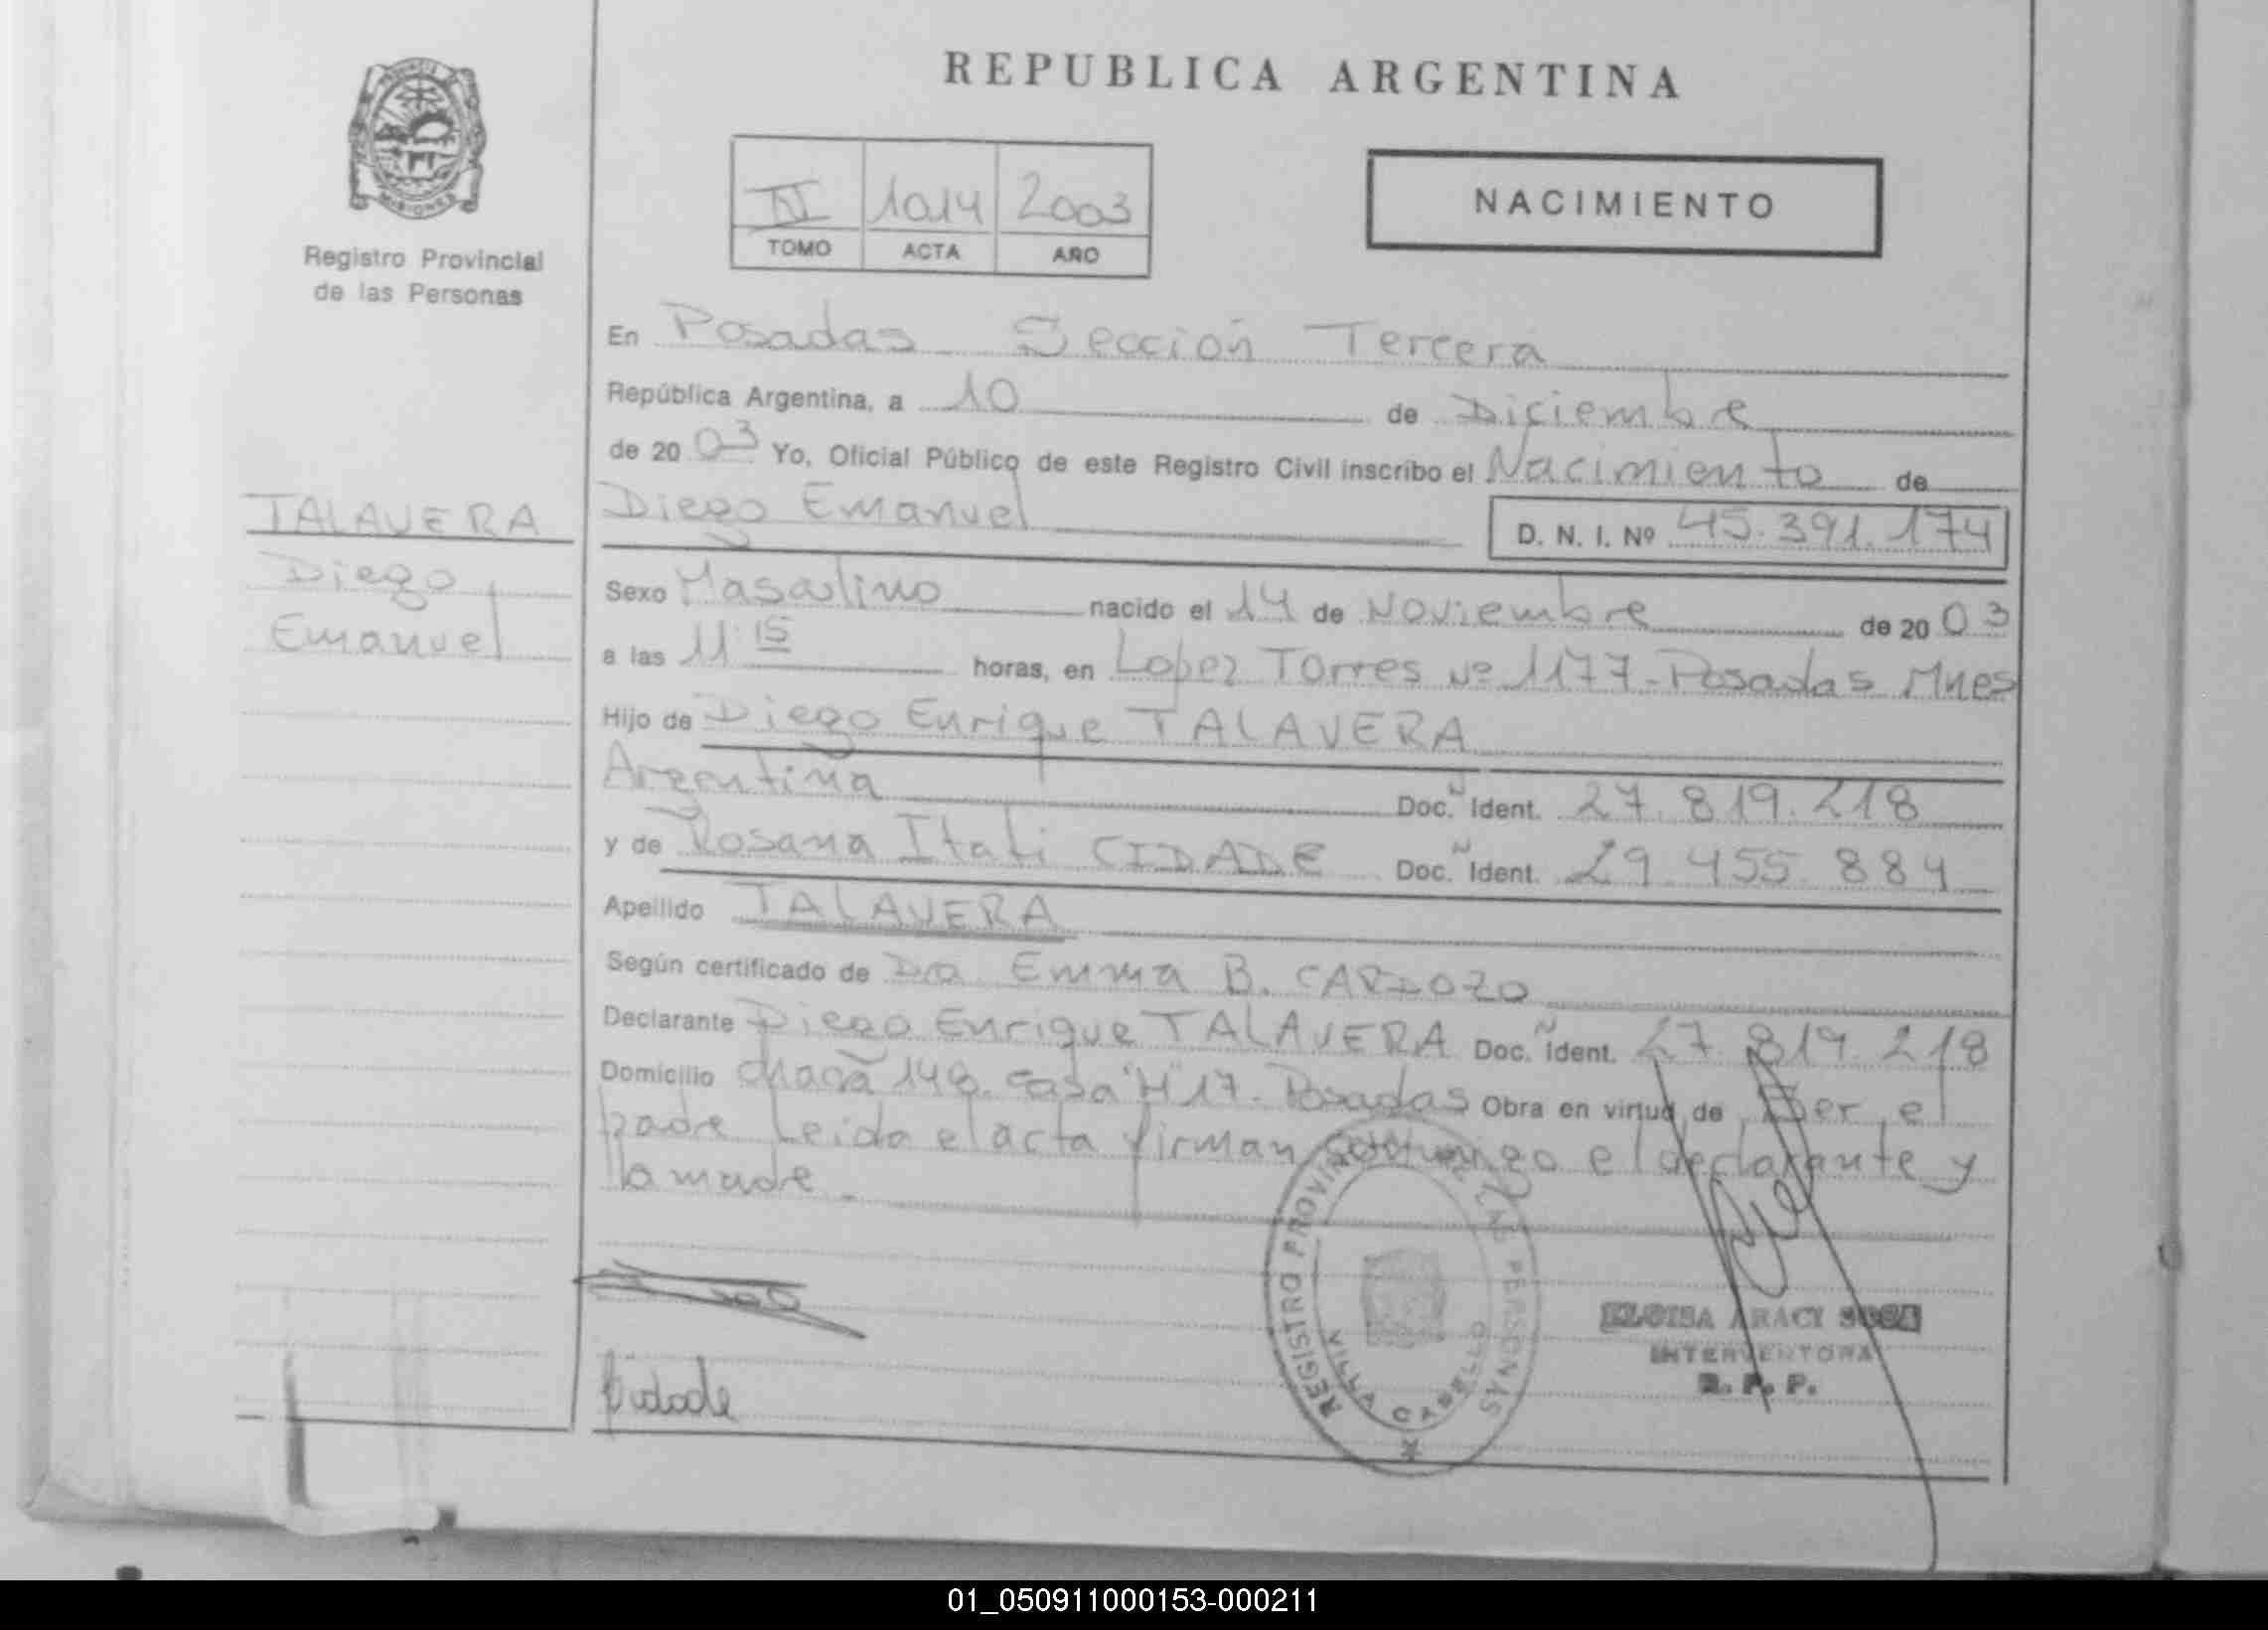 REPUBLICA ARGENTINA
PROVINCIA
MISIONES
Registro Provincial
de las Personas
1014 2003
TOMO ACTA AÑO
NACIMIENTO
En Posadas Sección Tercera
República Argentina, a 10 de Diciembre
de 20 03 Yo, Oficial Público de este Registro Civil inscribo el Nacimiento de
Diego Emanuel D. N. I. Nº 45.391.174
TALAVERA
Diego
Emanuel
Sexo Masculino nacido el 14 de Noviembre de 20 03
a las 11:15 horas, en Lopez Torres Nº 1177-Posadas Mnes
Hijo de Diego Enrique TALAVERA
Argentina Doc. Ident. 27.819.218
y de Rosana Itati CIDADE Doc. Ident. 29.455.884
Apellido TALAVERA
Según certificado de Dra. Emma B. CARDOZO
Declarante Diego Enrique TALAVERA Doc. Ident. 27.819.218
Domicilio 148. Casa "H" 17. Posadas Obra en virtud de Ser el
padre Leida el acta firman conmigo el declarante y
la madre.
Cidade
REGISTRO PROVINCIAL DE LAS PERSONAS
VILLA CABELLO
ELOISA ARACY SOSA
INTERVENTORA
R. P. P.
01_050911000153-000211